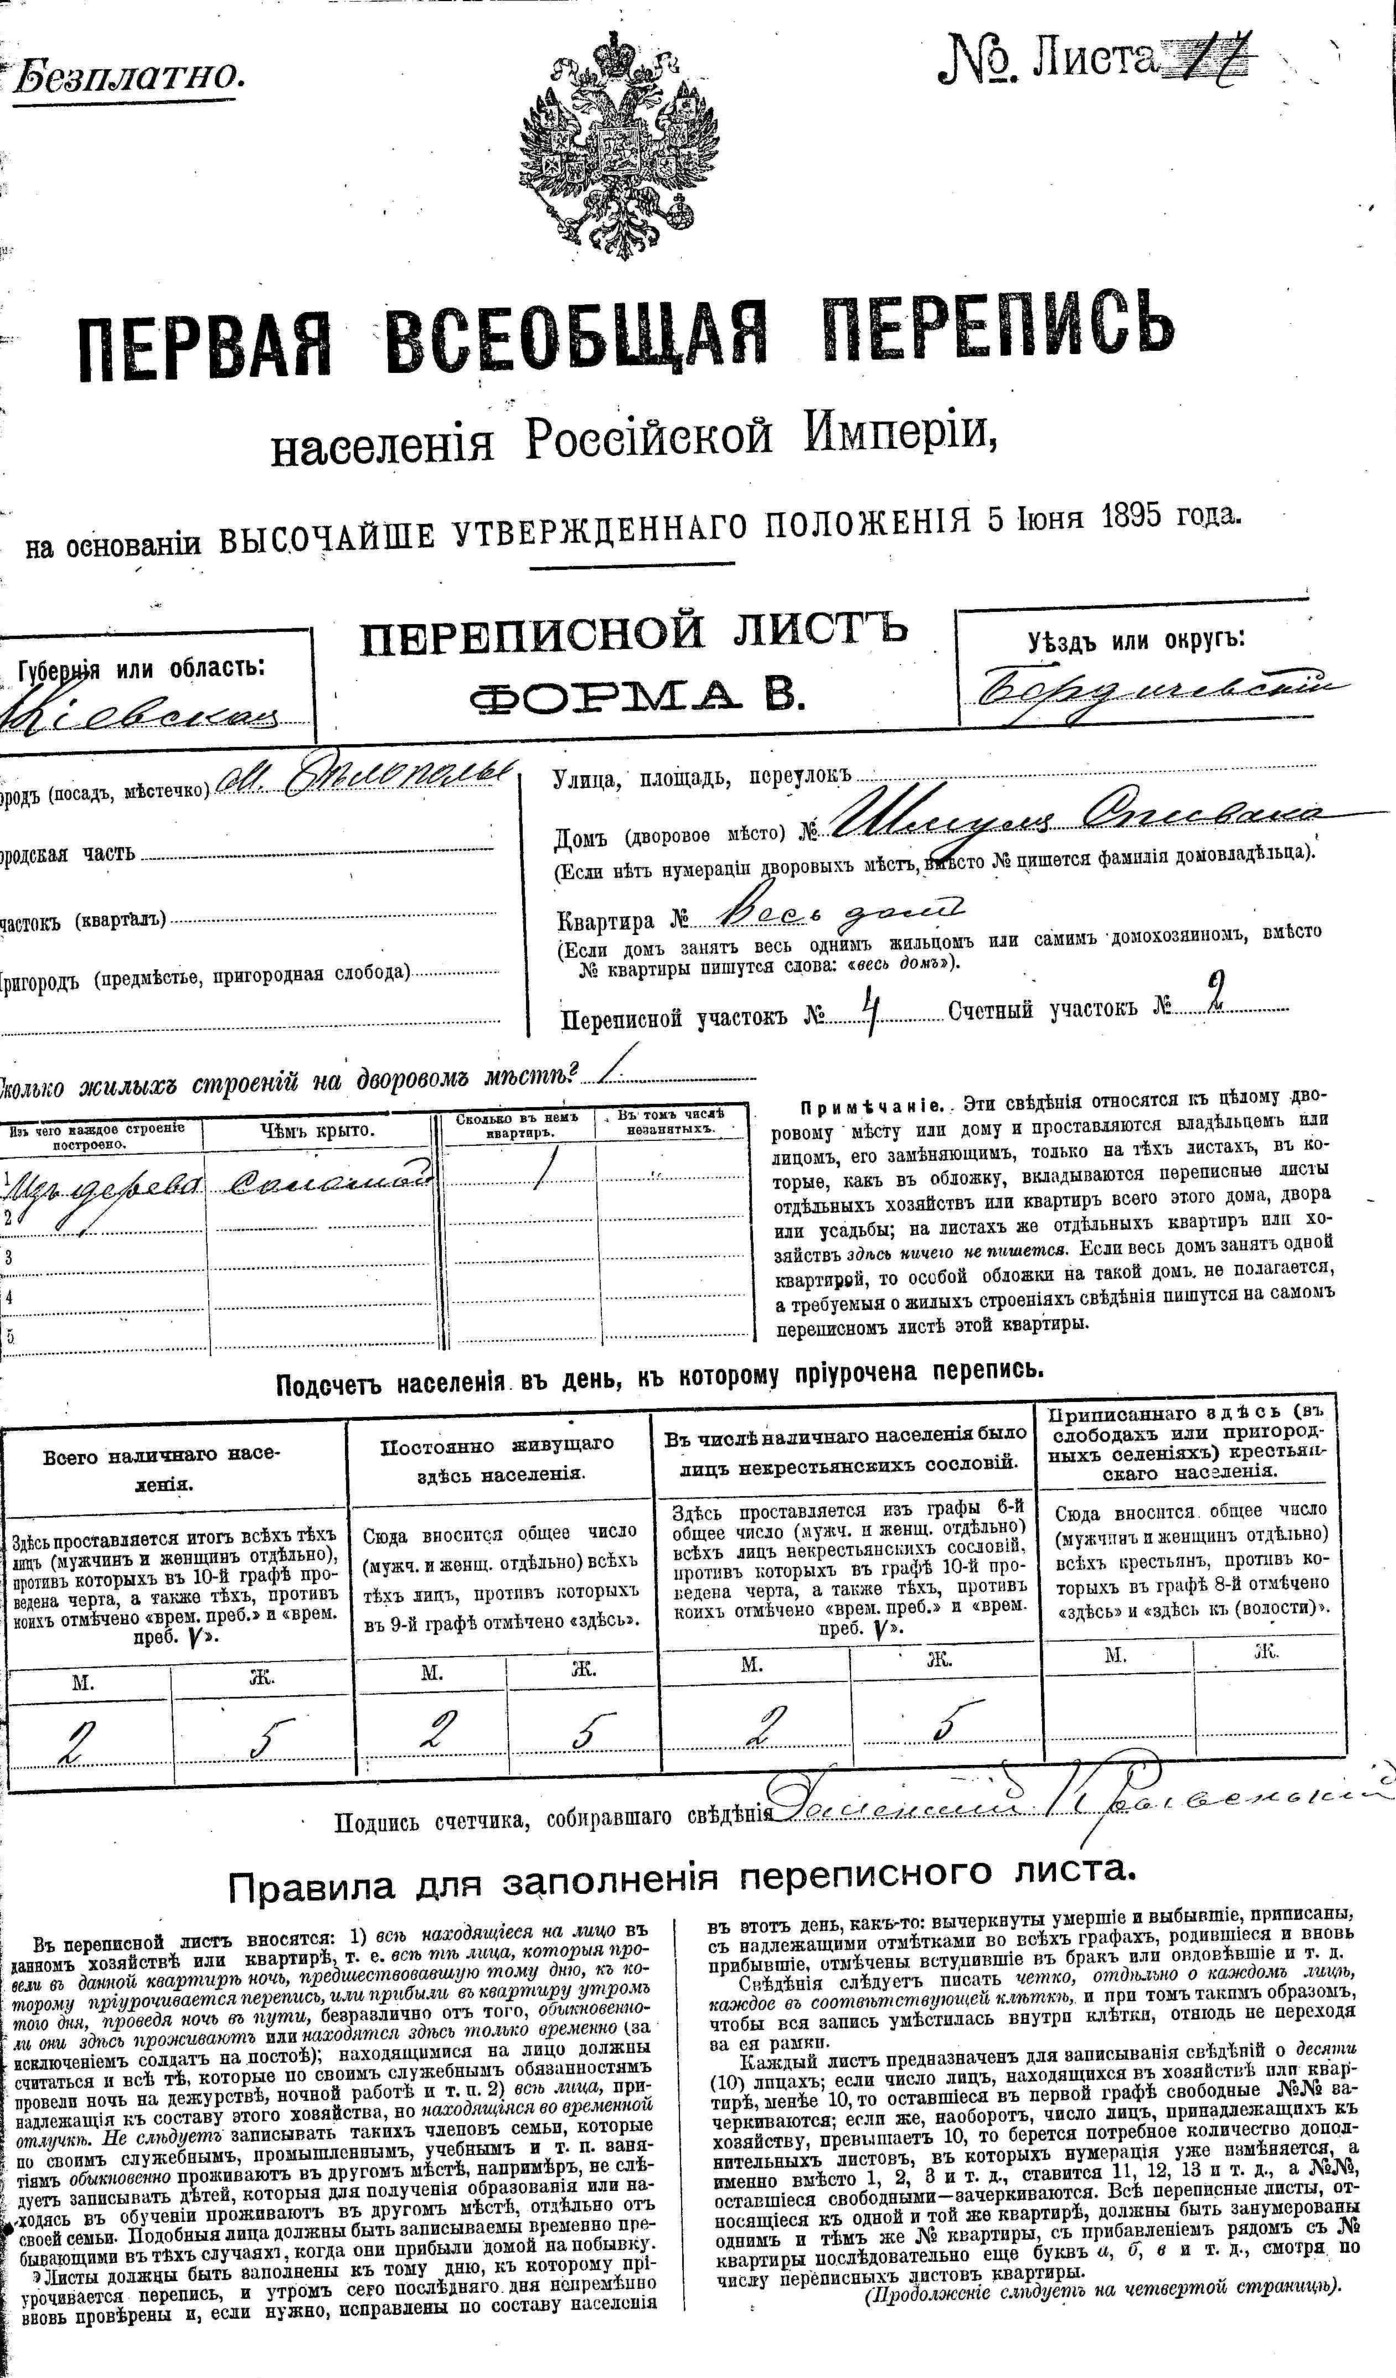 Безплатно.
№. Листа 17
ПЕРВАЯ ВСЕОБЩАЯ ПЕРЕПИСЬ
населенія Россійской Имперіи,
на основаніи ВЫСОЧАЙШЕ УТВЕРЖДЕННАГО ПОЛОЖЕНІЯ 5 Іюня 1895 года.
ПЕРЕПИСНОЙ ЛИСТЪ
ФОРМА В.
Губернія или область:
Кіевская
Уѣздъ или округъ:
Бердичевскій
ородъ (посадъ, мѣстечко) м. Бѣлополье
ородская часть
часток​ъ (кварталъ)
Пригородъ (предмѣстье, пригородная слобода)
Улица, площадь, переулокъ
Домъ (дворовое мѣсто) № Шмуля Спивака
(Если нѣтъ нумераціи дворовыхъ мѣстъ, вмѣсто № пишется фамилія домовладѣльца).
Квартира № Весь домъ
(Если домъ занятъ весь однимъ жильцомъ или самимъ домохозяиномъ, вмѣсто
№ квартиры пишутся слова: «весь домъ»).
Переписной участокъ № 4 Счетный участокъ № 2
Сколько жилыхъ строеній на дворовомъ мѣстѣ? 1
Изъ чего каждое строеніе
построено.
Чѣмъ крыто.
Сколько въ немъ
квартиръ.
Въ томъ числѣ
незанятыхъ.
1 Изъ дерева Соломой 1 "
2
3
4
5
Примѣчаніе. Эти свѣдѣнія относятся къ цѣлому дво-
ровому мѣсту или дому и проставляются владѣльцемъ или
лицомъ, его замѣняющимъ, только на тѣхъ листахъ, въ ко-
торые, какъ въ обложку, вкладываются переписные листы
отдѣльныхъ хозяйствъ или квартиръ всего этого дома, двора
или усадьбы; на листахъ же отдѣльныхъ квартиръ или хо-
зяйствъ здѣсь ничего не пишется. Если весь домъ занятъ одной
квартирой, то особой обложки на такой домъ не полагается,
а требуемыя о жилыхъ строеніяхъ свѣдѣнія пишутся на самомъ
переписномъ листѣ этой квартиры.
Подсчетъ населенія въ день, къ которому пріурочена перепись.
Всего наличнаго насе-
ленія.
Здѣсь проставляется итогъ всѣхъ тѣхъ
лицъ (мужчинъ и женщинъ отдѣльно),
противъ которыхъ въ 10-й графѣ про-
ведена черта, а также тѣхъ, противъ
коихъ отмѣчено «врем. преб.» и «врем.
преб. V».
Постоянно живущаго
здѣсь населенія.
Сюда вносится общее число
(мужч. и женщ. отдѣльно) всѣхъ
тѣхъ лицъ, противъ которыхъ
въ 9-й графѣ отмѣчено «здѣсь».
Въ числѣ наличнаго населенія было
лицъ некрестьянскихъ сословій.
Здѣсь проставляется изъ графы 6-й
общее число (мужч. и женщ. отдѣльно)
всѣхъ лицъ некрестьянскихъ сословій,
противъ которыхъ въ графѣ 10-й про-
ведена черта, а также тѣхъ, противъ
коихъ отмѣчено «врем. преб.» и «врем.
преб. V».
Приписаннаго здѣсь (въ
слободахъ или пригород-
ныхъ селеніяхъ) крестьян-
скаго населенія.
Сюда вносится общее число
(мужчинъ и женщинъ отдѣльно)
всѣхъ крестьянъ, противъ ко-
торыхъ въ графѣ 8-й отмѣчено
«здѣсь» и «здѣсь къ (волости)».
М. Ж. М. Ж. М. Ж. М. Ж.
2 5 2 5 2 5
Подпись счетчика, собиравшаго свѣдѣнія
Правила для заполненія переписного листа.
Въ переписной листъ вносятся: 1) всѣ находящіеся на лицо въ
данномъ хозяйствѣ или квартирѣ, т. е. всѣ тѣ лица, которыя про-
вели въ данной квартирѣ ночь, предшествовавшую тому дню, къ ко-
торому пріурочивается перепись, или прибыли въ квартиру утромъ
того дня, проведя ночь въ пути, безразлично отъ того, обыкновенно-
ли они здѣсь проживаютъ или находятся здѣсь только временно (за
исключеніемъ солдатъ на постоѣ); находящимися на лицо должны
считаться и всѣ тѣ, которые по своимъ служебнымъ обязанностямъ
провели ночь на дежурствѣ, ночной работѣ и т. п. 2) всѣ лица, при-
надлежащія къ составу этого хозяйства, но находящіяся во временной
отлучкѣ. Не слѣдуетъ записывать такихъ членовъ семьи, которые
по своимъ служебнымъ, промышленнымъ, учебнымъ и т. п. заня-
тіямъ обыкновенно проживаютъ въ другомъ мѣстѣ, напримѣръ, не слѣ-
дуетъ записывать дѣтей, которыя для полученія образованія или на-
ходясь въ обученіи проживаютъ въ другомъ мѣстѣ, отдѣльно отъ
своей семьи. Подобныя лица должны быть записываемы временно пре-
бывающими въ тѣхъ случаяхъ, когда они прибыли домой на побывку.
Листы должны быть заполнены къ тому дню, къ которому прі-
урочивается перепись, и утромъ сего послѣдняго дня непремѣнно
вновь провѣрены и, если нужно, исправлены по составу населенія
въ этотъ день, какъ-то: вычеркнуты умершіе и выбывшіе, приписаны,
съ надлежащими отмѣтками во всѣхъ графахъ, родившіеся и вновь
прибывшіе, отмѣчены вступившіе въ бракъ или овдовѣвшіе и т. д.
Свѣдѣнія слѣдуетъ писать четко, отдѣльно о каждомъ лицѣ,
каждое въ соотвѣтствующей клѣткѣ, и при томъ такимъ образомъ,
чтобы вся запись умѣстилась внутри клѣтки, отнюдь не переходя
за ея рамки.
Каждый листъ предназначенъ для записыванія свѣдѣній о десяти
(10) лицахъ; если число лицъ, находящихся въ хозяйствѣ или квар-
тирѣ, менѣе 10, то оставшіеся въ первой графѣ свободные №№ за-
черкиваются; если же, наоборотъ, число лицъ, принадлежащихъ къ
хозяйству, превышаетъ 10, то берется потребное количество допол-
нительныхъ листовъ, въ которыхъ нумерація уже измѣняется, а
именно вмѣсто 1, 2, 3 и т. д., ставится 11, 12, 13 и т. д., а №№,
оставшіеся свободными—зачеркиваются. Всѣ переписные листы, от-
носящіеся къ одной и той же квартирѣ, должны быть занумерованы
однимъ и тѣмъ же № квартиры, съ прибавленіемъ рядомъ съ №
квартиры послѣдовательно еще буквъ а, б, в и т. д., смотря по
числу переписныхъ листовъ квартиры.
(Продолженіе слѣдуетъ на четвертой страницѣ).